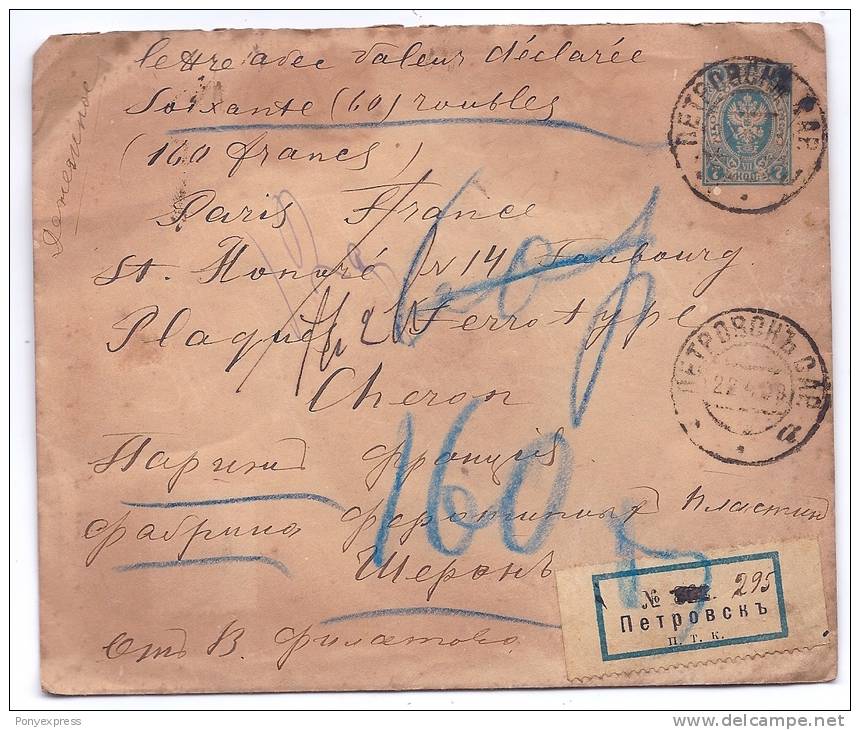 Денежное
lettre avec valeur déclarée
Soixante (60) roubles
(160 francs)
Paris France
St. Honoré N 14 Faubourg
Plaques Ferrotype
Cheron
60 р
160
Парижъ Франція
фабрика феротипныхъ пластин
Шеронъ
Отъ В. Филатова
ПЕТРОВСКЪ САР.
ПЕТРОВСКЪ САР.
№ 295
Петровскъ
П. Т. К.
Ponyexpress
www.delcampe.net